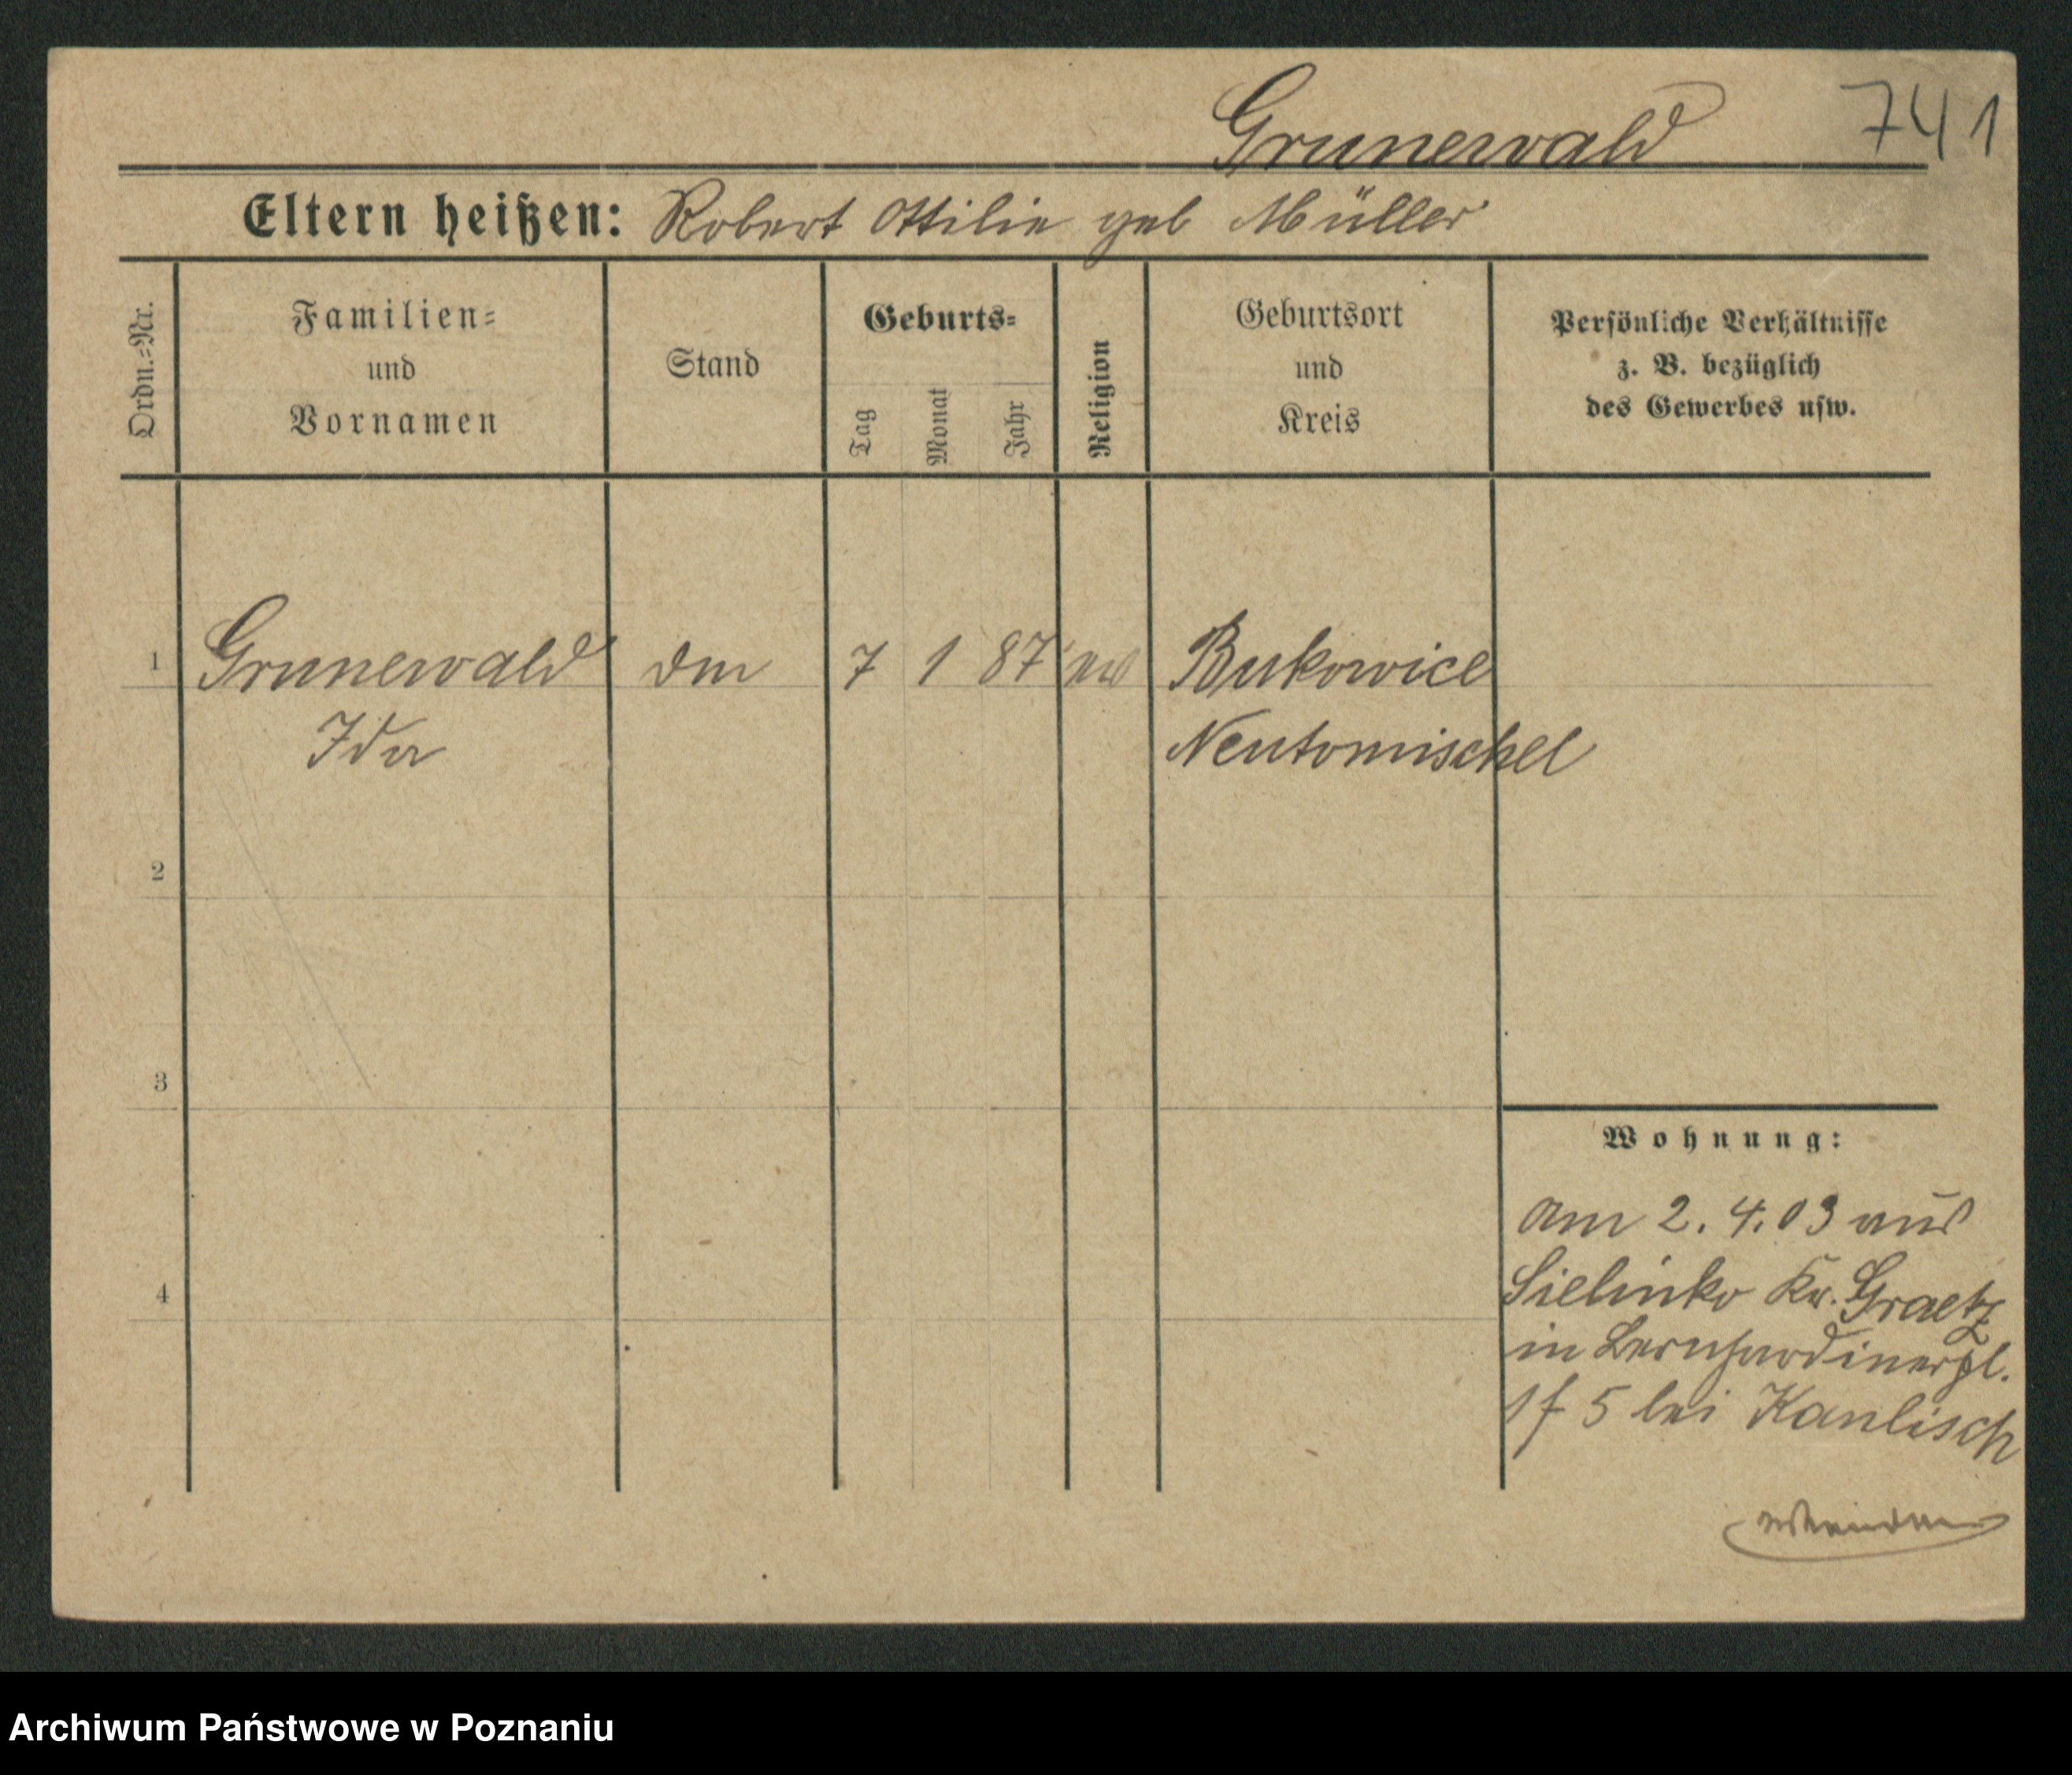 Grunewald 741
Eltern heißen: Robert Ottilie geb Müller
Ordn.=Nr.
Familien=
und
Vornamen
Stand
Geburts=
Tag
Monat
Jahr
Religion
Geburtsort
und
Kreis
Persönliche Verhältnisse
z. B. bezüglich
des Gewerbes usw.
1 Grunewald dm 7 1 87 ev Bukowice
Ida Neutomischel
2
3
4
Wohnung:
am 2. 4. 03 aus
Sielinko Kr. Graetz
in Bernhardinerpl.
1 f 5 bei Kanlisch
Archiwum Państwowe w Poznaniu